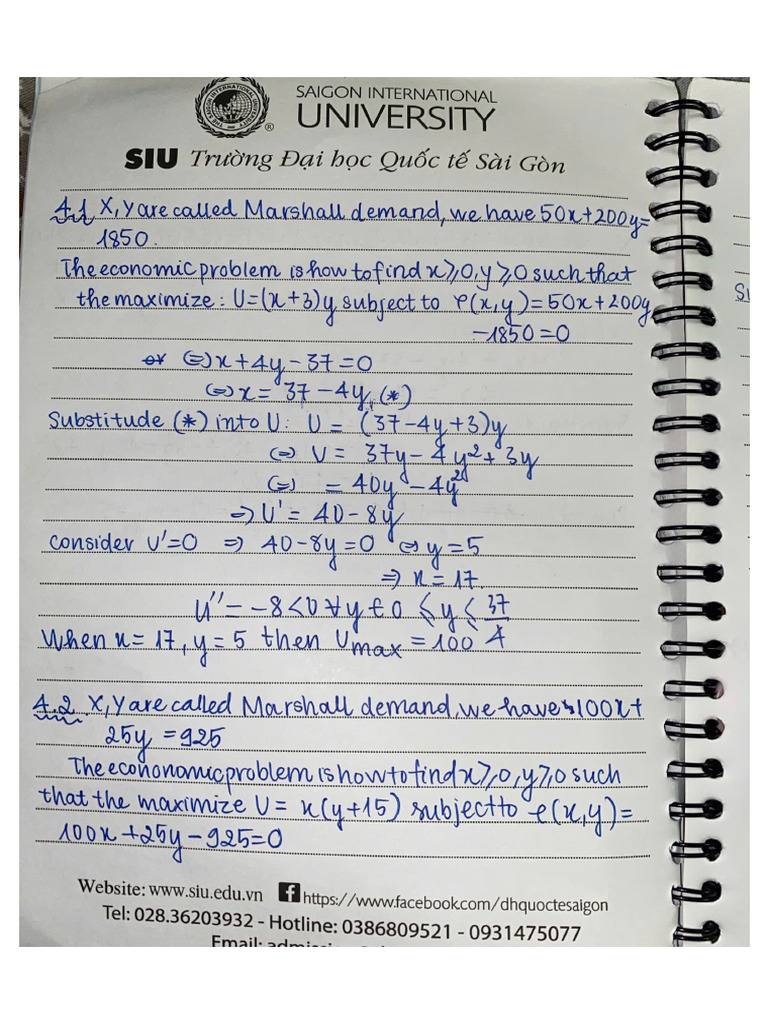 SAIGON INTERNATIONAL
UNIVERSITY
®
SIU Trường Đại học Quốc tế Sài Gòn
4.1 X, Y are called Marshall demand, we have 50x + 200y =
1850.
The economic problem is how to find x ⩾ 0, y ⩾ 0 such that
the maximize: U = (x + 3)y subject to φ(x, y) = 50x + 200y
- 1850 = 0
(=) x + 4y - 37 = 0
(=) x = 37 - 4y, (*)
Substitude (*) into U: U = (37 - 4y + 3)y
(=) U = 37y - 4y² + 3y
(=) = 40y - 4y²
=> U' = 40 - 8y
consider U' = 0 => 40 - 8y = 0 (=) y = 5
=> x = 17
U'' = -8 < 0 ∀ y ∈ 0 ⩽ y ⩽ 37/4
When x = 17, y = 5 then Umax = 100
4.2 X, Y are called Marshall demand, we have 100x +
25y = 925
The econonomic problem is how to find x ⩾ 0, y ⩾ 0 such
that the maximize U = x(y + 15) subject to φ(x, y) =
100x + 25y - 925 = 0
Website: www.siu.edu.vn f https://www.facebook.com/dhquoctesaigon
Tel: 028.36203932 - Hotline: 0386809521 - 0931475077
Email: